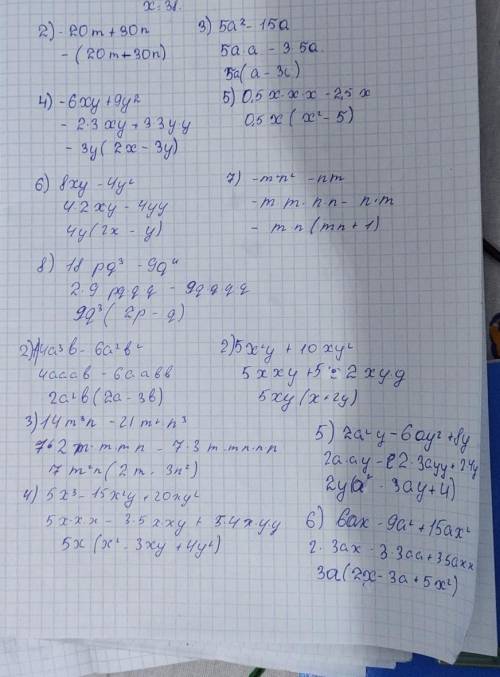 x = 31.
2) -20m + 30n
- (20m + 30n)
3) 5a² - 15a
5a a - 3 5a
5a(a - 3)
4) -6xy + 9y²
- 2·3 xy + 3 3 y·y
- 3y( 2x - 3y)
5) 0,5 x·x·x - 2,5 x
0,5 x ( x² - 5 )
6) 8xy - 4y²
4·2xy - 4yy
4y(2x - y)
7) -m²n² - nm
-m m·n·n - n·m
- m n (mn + 1)
8) 18 pq³ - 9q⁴
2·9 pq·q·q - 9q·q·q·q
9q³( 2p - q)
2) 4a³b - 6a²b²
4aaab - 6aabb
2a²b(2a - 3b)
2) 5x²y + 10xy²
5xxy + 5·2xy·y
5xy(x + 2y)
3) 14m³n - 21m²n³
7·2 m·m·m·n - 7·3 m·m·n·n·n
7m²n(2m - 3n²)
4) 5x³ - 15x²y + 20xy²
5x·x·x - 3·5x·xy + 5·4x·yy
5x(x² - 3xy + 4y²)
5) 2a²y - 6ay² + 8y
2a·ay - 2·3ayy + 2·4y
2y(a² - 3ay + 4)
6) 6ax - 9a² + 15ax²
2·3ax - 3·3aa + 35axx
3a(2x - 3a + 5x²)